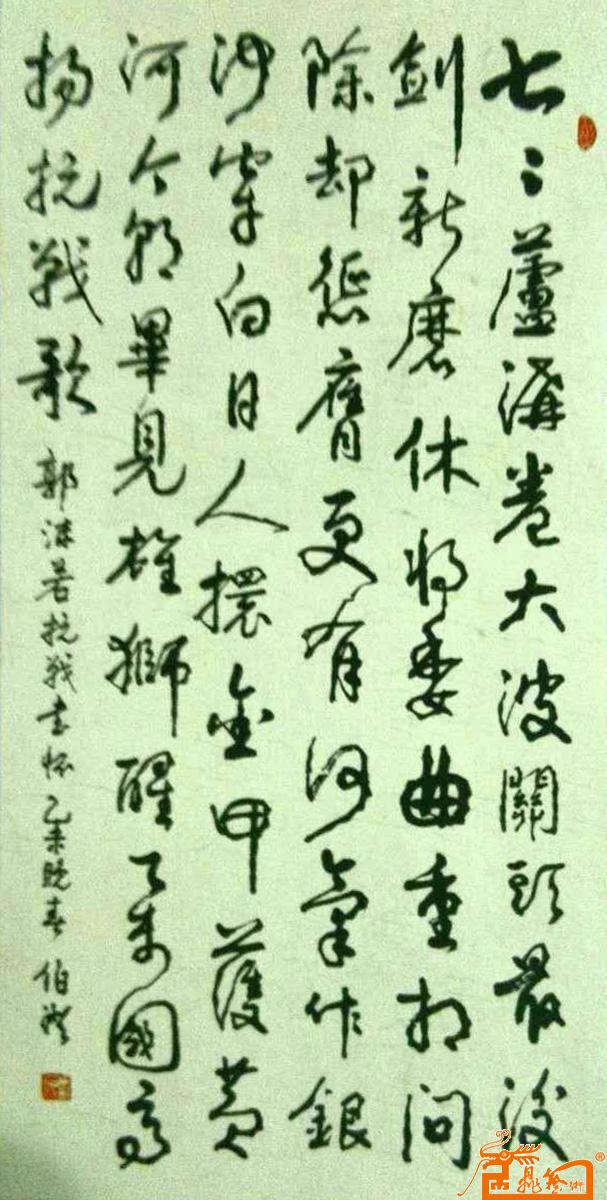 七〻蘆溝卷大波關頭最後
劍新磨休將委曲重相問
除却懲膺更有何氣作銀
河穿白日人擐金甲護黃
河今朝畢見雄獅醒萬國高
揚抗戰歌
郭沫若抗戰書懷 乙未晚春 伯
藝術